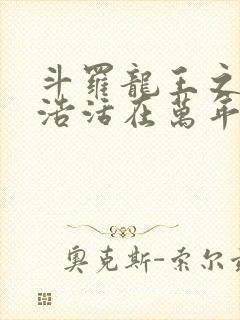 斗羅龍王之
浩活在萬年
奧克斯-索尔